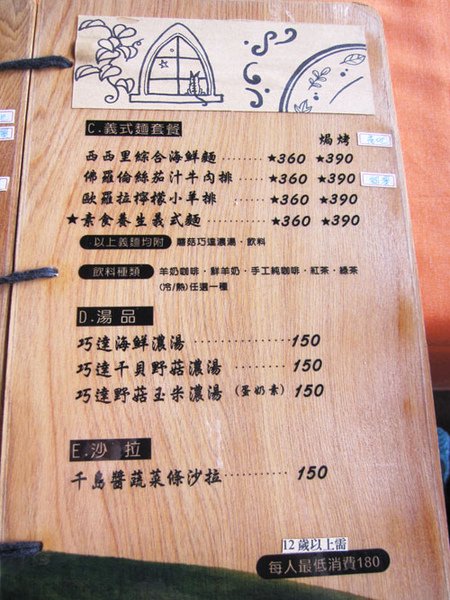 C.義式麵套餐
焗烤
西西里綜合海鮮麵 ········ ★360 ★390
佛羅倫絲茄汁牛肉排 ······ ★360 ★390
歐羅拉檸檬小羊排 ······ ★360 ★390
★素食養生義式麵 ········ ★360 ★390
以上義麵均附 蘑菇巧達濃湯、飲料
飲料種類 羊奶咖啡、鮮羊奶、手工純咖啡、紅茶、綠茶
(冷/熱)任選一種
D.湯品
巧達海鮮濃湯 ················ 150
巧達干貝野菇濃湯 ·········· 150
巧達野菇玉米濃湯 (蛋奶素) 150
E.沙 拉
千島醬蔬菜條沙拉 ·········· 150
12歲以上需
每人最低消費180